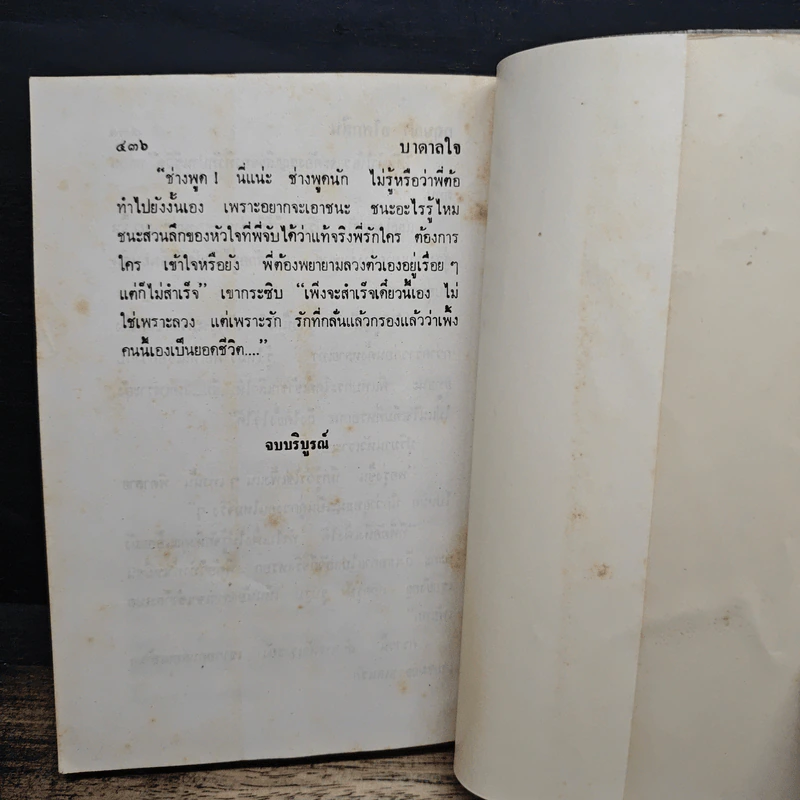 ๔๓๖ บาดาลใจ
“ช่างพูด ! นี่แน่ะ ช่างพูดนัก ไม่รู้หรือว่าพี่ต้อ
ทำไปยังงั้นเอง เพราะอยากจะเอาชนะ ชนะอะไรรู้ไหม
ชนะส่วนลึกของหัวใจที่พี่จับได้ว่าแท้จริงพี่รักใคร ต้องการ
ใคร เข้าใจหรือยัง พี่ต้องพยายามลวงตัวเองอยู่เรื่อย ๆ
แต่ก็ไม่สำเร็จ” เขากระซิบ “เพิ่งจะสำเร็จเดี๋ยวนี้เอง ไม่
ใช่เพราะลวง แต่เพราะรัก รักที่กลั่นแล้วกรองแล้วว่าเพิ้ง
คนนี้เองเป็นยอดชีวิต....”
จบบริบูรณ์